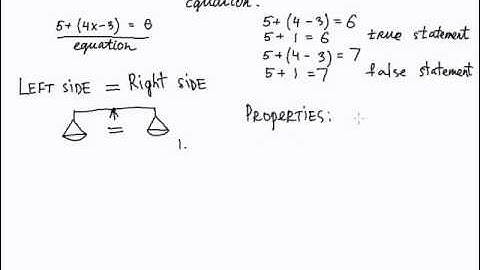 equation.
5+(4x-3) = 6
equation
5+(4-3)=6
5+1=6 true statement
5+(4-3)=7
5+1=7 false statement
LEFT SIDE = Right SIDE
=
1.
PROPERTIES: